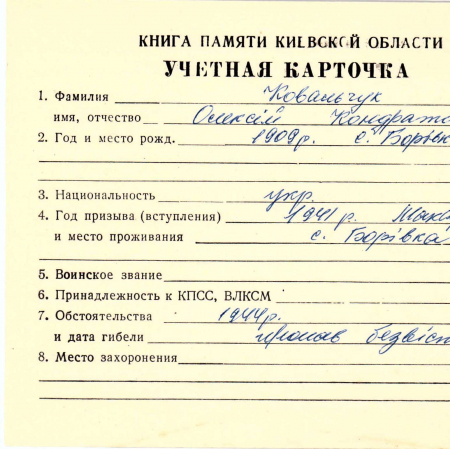 КНИГА ПАМЯТИ КИЕВСКОЙ ОБЛАСТИ
УЧЕТНАЯ КАРТОЧКА
1. Фамилия Ковальчук
имя, отчество Олексій Кондрат
2. Год и место рожд. 1909р. с. Борівк
3. Национальность укр.
4. Год призыва (вступления) 1941 р.
и место проживания с. Борівка
5. Воинское звание
6. Принадлежность к КПСС, ВЛКСМ
7. Обстоятельства 1944р.
и дата гибели пропав безвіст
8. Место захоронения